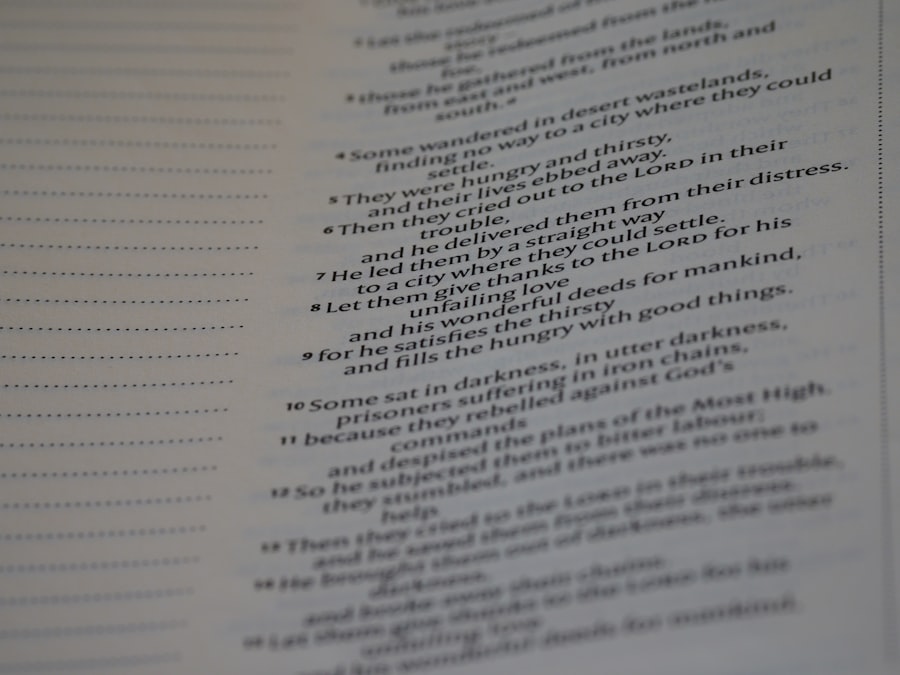 Let the redeemed of the
story—
those he redeemed from the
foe,
³ those he gathered from the lands,
from east and west, from north and
south.ᵃ
⁴ Some wandered in desert wastelands,
finding no way to a city where they could
settle.
⁵ They were hungry and thirsty,
and their lives ebbed away.
⁶ Then they cried out to the LORD in their
trouble,
and he delivered them from their distress.
⁷ He led them by a straight way
to a city where they could settle.
⁸ Let them give thanks to the LORD for his
unfailing love
and his wonderful deeds for mankind,
⁹ for he satisfies the thirsty
and fills the hungry with good things.
¹⁰ Some sat in darkness, in utter darkness,
prisoners suffering in iron chains,
¹¹ because they rebelled against God's
commands
and despised the plans of the Most High.
¹² So he subjected them to bitter labour;
they stumbled, and there was no one to
help.
¹³ Then they cried to the LORD in their trouble,
and he saved them from their distress.
¹⁴ He brought them out of darkness, the utter
darkness,
and broke away their chains.
¹⁵ Let them give thanks to the LORD for his
unfailing love
and his wonderful deeds for mankind,